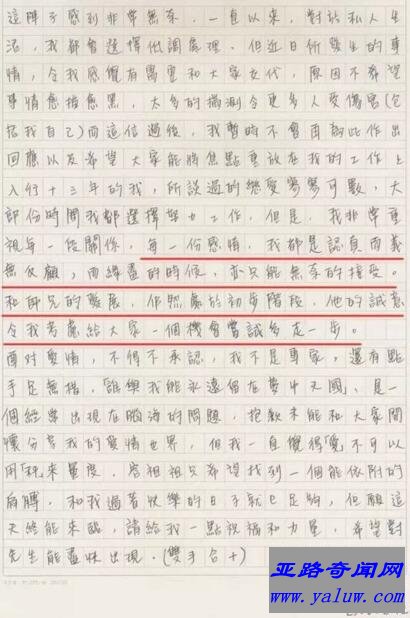 這陣子感到非常無奈，一直以來，對於私人生
活，我都會選擇低調處理，但近日所發生的事
情，令我感覺有需要和大家交代，原因不希望
事情愈描愈黑，太多的揣測令更多人受傷害(包
括我自己)而這信過後，我暫時不會再為此作出
回應以及希望大家能將焦點重放在我的工作上
入行十三年的我，所談過的戀愛寥寥可數，大
部份時間我都選擇努力工作，但是，我非常重
視每一段關係，每一份感情，我都是認真而義
無反顧，而緣盡的時候，亦只能無奈的接受。
和師兄的發展，仍然處於初步階段，他的誠意
令我考慮給大家一個機會嘗試多走一步。
面對愛情，不得不承認，我不是專家，還有點
手足無措，「誰與我能永遠個在夢中天國」，是一
個經常出現在腦海的問題，抱歉未能和大家開
懷分享我的愛情世界，但我一直覺得「愛」不可以
用「秤」來量度，容祖兒只希望找到一個能依附的
肩膊，和我過著快樂的日子就已足夠，但願這
天終能來臨，請給我一點祝福和力量，希望對
先生能盡快出現。(雙手合十)
亚路奇闻网
www.yaluw.com